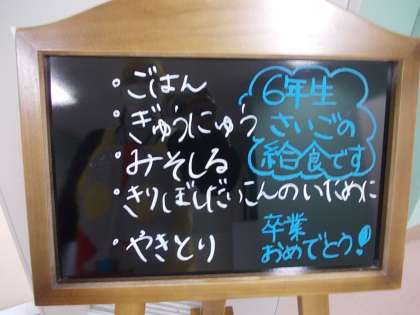 ・ごはん
・ぎゅうにゅう
・みそしる
・きりぼしだいこんのいために
・やきとり
6年生
さいごの
給食です
卒業
おめでとう!